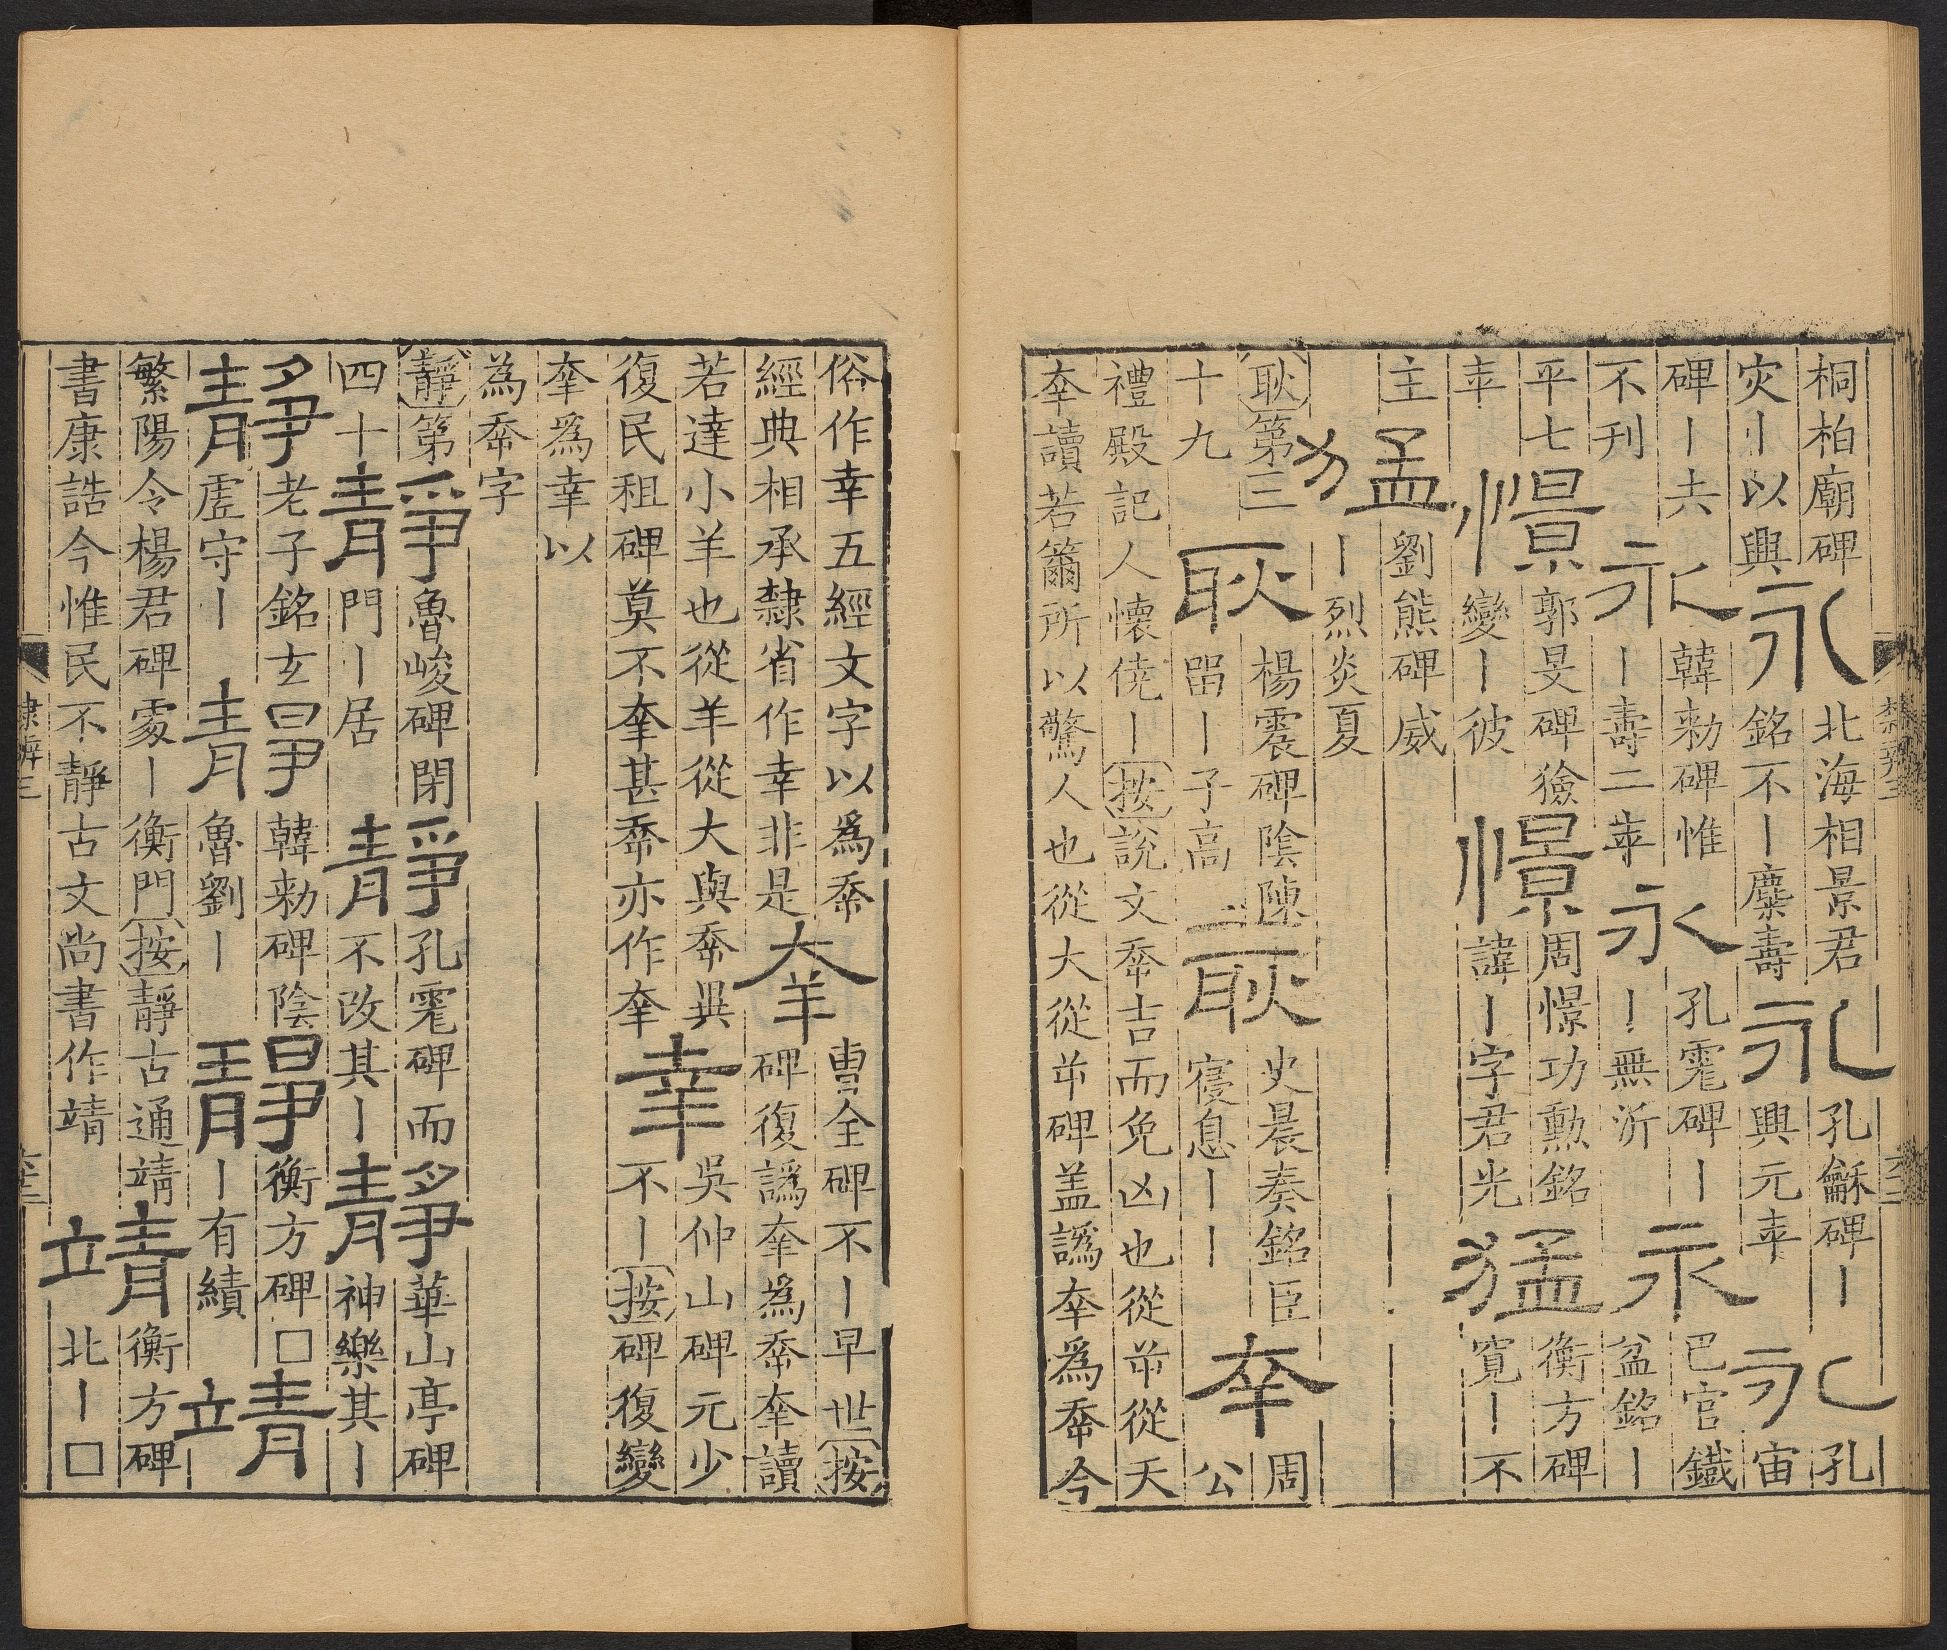 桐柏廟碑永北海相景君永孔龢碑丨永孔
灾丨以興銘不丨麋壽興元年宙
碑丨六永韓勑碑惟永孔宙碑丨永巳官鐵
不刊丨壽二年丨無沂盆銘丨
平七憬郭旻碑獫憬周憬功勳銘猛衡方碑
年變丨彼諱丨字君光寬丨不
主猛劉熊碑威
丨烈炎夏
耿第三耿楊震碑陰陳耿史晨奏銘臣㚔周
十九留丨子高寑息丨丨公
禮殿記人懷僥丨按說文㚔吉而免凶也從屰從夭
㚔讀若籋所以驚人也從大從𢆉碑盖譌㚔為㚔今
俗作幸五經文字以為㚔羍曹全碑不丨早世按
經典相承隸省作幸非是碑復譌㚔為㚔羍讀
若達小羊也從羊從大與㚔異幸吳仲山碑元少
復民租碑莫不羍甚㚔亦作羍不丨按碑復變
羍為幸以
為㚔字
靜第靜魯峻碑閉靜孔宙碑而靜華山亭碑
四十門丨居不改其丨神樂其丨
靜老子銘玄靜韓勑碑陰靜衡方碑□靖
虛守丨魯劉丨丨有績
繁陽令楊君碑䖏丨衡門按靜古通靖靖衡方碑
書康誥今惟民不靜古文尚書作靖北丨□
隸辨三